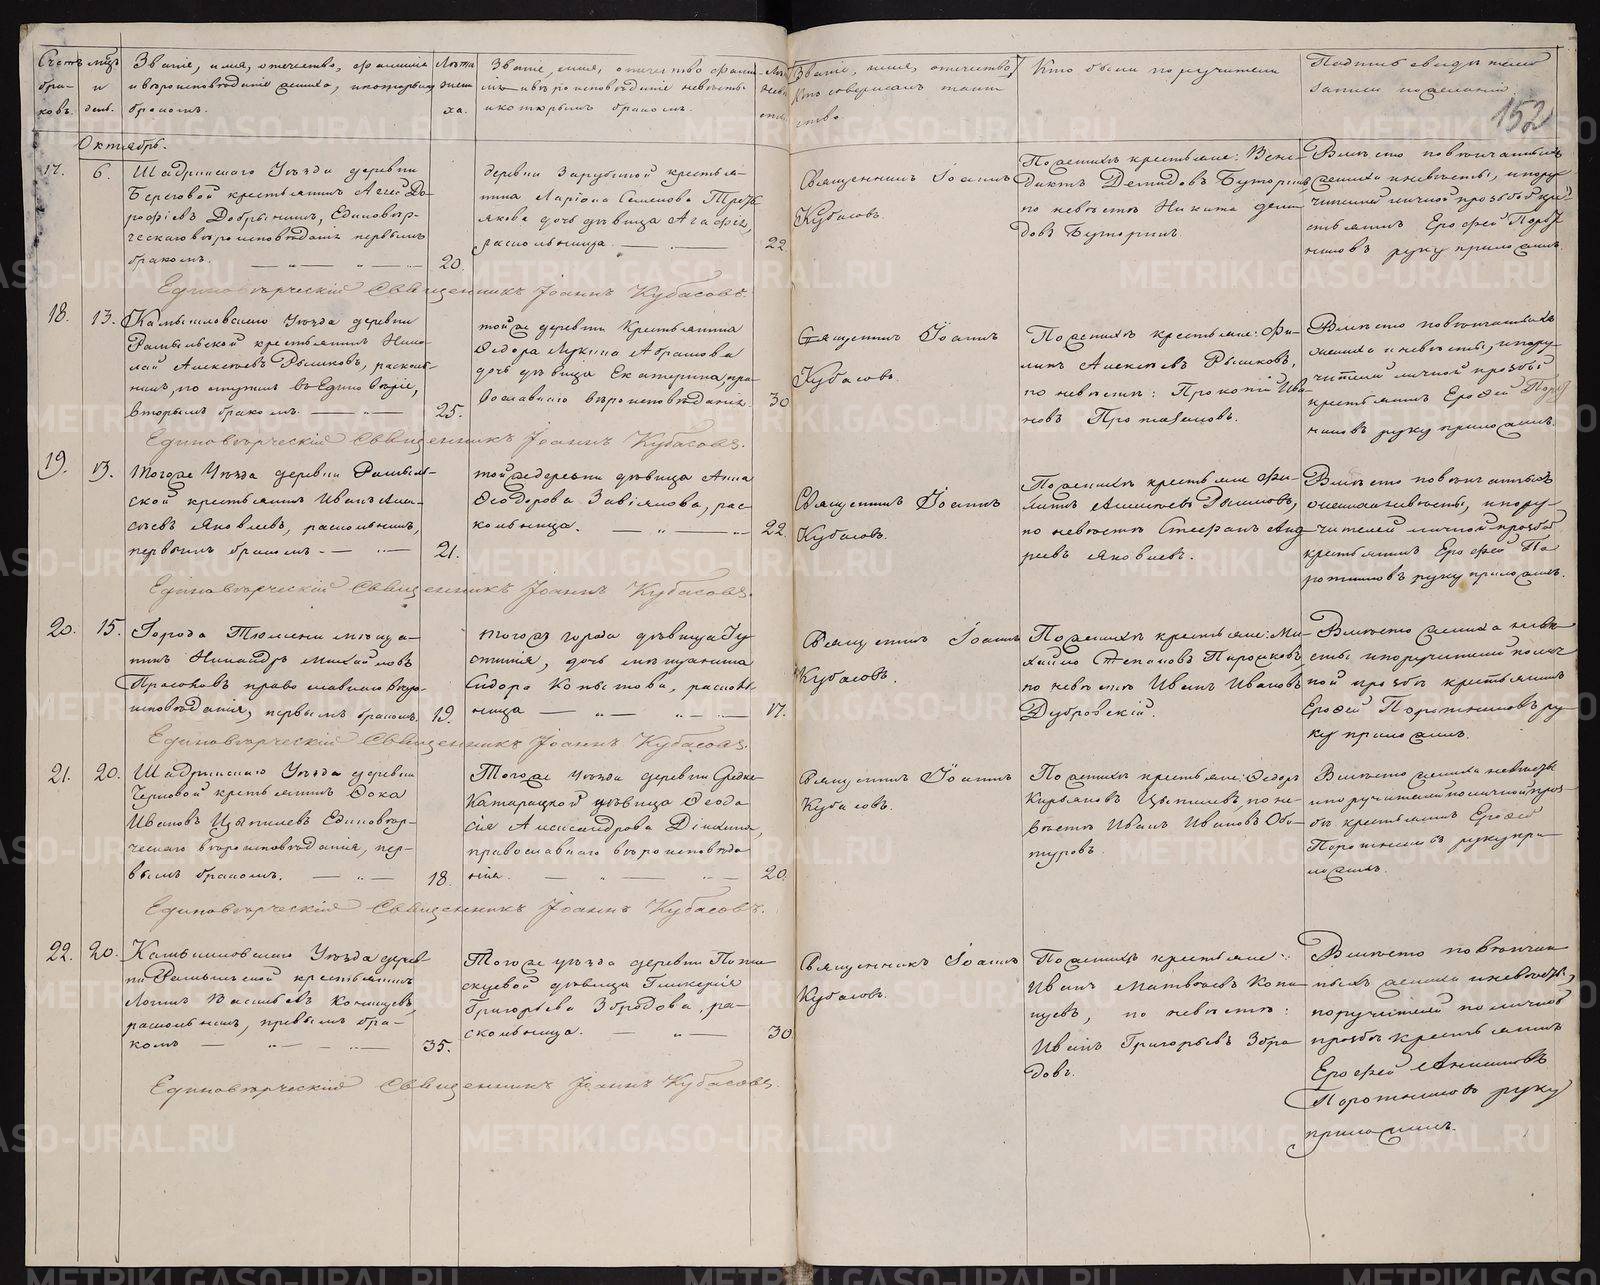 Счетъ бра-ковъ.
мѣц. и дни.
Званіе, имя, отечество, фамилія
и вѣроисповѣданіе жениха, и которымъ
бракомъ.
Лѣта жени-ха.
Званіе, имя, отечество, фами-
лія и вѣроисповѣданіе невѣсты
и которымъ бракомъ.
Званіе, имя, отечество,
кто совершалъ таин-
ство
Кто были поручители
Подпись свидѣтелей
записи по желанію
152
Октябрь.
17.
6.
Шадринскаго Уѣзда деревни
Береговой крестьянинъ Агей До-
рофѣевъ Добрынинъ, Единовѣр-
ческаго вѣроисповѣданія первымъ
бракомъ.
20.
деревни Зарубиной крестья-
нина Ларіона Семенова
дочь дѣвица Агафія,
раскольница
22
Священникъ Іоаннъ
Кубасовъ.
По женихѣ крестьяне: Вене-
диктъ Демидовъ Буторинъ
по невѣстѣ Никита Деми-
довъ Буторинъ.
Вмѣсто повѣнчанныхъ
жениха и невѣсты, и пору-
чителей личной прозьбой кре-
стьянинъ Ерофей Порот-
никовъ руку приложилъ.
Единовѣрческій Священникъ Іоаннъ Кубасовъ.
18.
13.
Камышловскаго Уѣзда деревни
крестьянинъ Нико-
лай Алексѣевъ Рычковъ, расколь-
никъ, по
вторымъ бракомъ
25.
той же деревни Крестьянина
Ѳедора Лукина Абрамова
дочь дѣвица Екатерина, пра-
вославнаго вѣроисповѣданія.
30
Священникъ Іоаннъ
Кубасовъ.
По женихѣ крестьяне: Фи-
липъ Алексѣевъ Рычковъ,
по невѣстѣ: Прокопій Ива-
новъ
Вмѣсто повѣнчанныхъ
жениха и невѣсты, и пору-
чителей личной прозьбой
крестьянинъ Ерофей Порот-
никовъ руку приложилъ.
Единовѣрческій Священникъ Іоаннъ Кубасовъ.
19.
13.
Того же Уѣзда деревни
ской крестьянинъ Иванъ
Яковлевъ, раскольникъ,
первымъ бракомъ
21.
той же деревни дѣвица Анна
Ѳеодорова Завьялова, рас-
кольница.
22.
Священникъ Іоаннъ
Кубасовъ.
По женихѣ крестьяне Фи-
липъ Алексѣевъ Рычковъ,
по невѣстѣ Стефанъ Анд-
реевъ Яковлевъ.
Вмѣсто повѣнчанныхъ
жениха и невѣсты, и пору-
чителей личной прозьбой
крестьянинъ Ерофей По-
ротниковъ руку приложилъ.
Единовѣрческій Священникъ Іоаннъ Кубасовъ.
20.
15.
Города Тюмени мѣща-
нинъ Никандръ Михайловъ
Прасоловъ православнаго вѣро-
исповѣданія, первымъ бракомъ.
19.
того же города дѣвица Іу-
стинія, дочь мѣщанина
Сидора Копытова, расколь-
ница
17.
Священникъ Іоаннъ
Кубасовъ.
По женихѣ крестьяне: Ми-
хайло Степановъ Пирожковъ
по невѣстѣ Иванъ Ивановъ
Дубровскій.
Вмѣсто жениха невѣ-
сты и поручителей по лич-
ной прозьбѣ крестьянинъ
Ерофей Поротниковъ ру-
ку приложилъ.
Единовѣрческій Священникъ Іоаннъ Кубасовъ.
21.
20.
Шадринскаго Уѣзда деревни
Черновой крестьянинъ Ѳока
Ивановъ Цыпилевъ Единовѣр-
ческаго вѣроисповѣданія, пер-
вымъ бракомъ.
18.
Того же уѣзда деревни Средне-
Катарацкой дѣвица Ѳеодо-
сія Александрова
православнаго вѣроисповѣда-
нія.
20.
Священникъ Іоаннъ
Кубасовъ.
По женихѣ крестьяне: Ѳедоръ
Кирьяновъ Цыпилевъ, по не-
вѣстѣ Иванъ Ивановъ Обо-
туровъ.
Вмѣсто жениха невѣсты
и поручителей по личной проз-
бѣ крестьянинъ Ерофей
Поротниковъ руку при-
ложилъ.
Единовѣрческій Священникъ Іоаннъ Кубасовъ.
22.
20.
Камышловскаго Уѣзда дерев-
ни крестьянинъ
Логинъ Васильевъ Копицевъ,
раскольникъ, первымъ бра-
комъ
35.
Того же уѣзда деревни
дѣвица Гликерія
Григорьева Збродова, ра-
скольница.
30
Священникъ Іоаннъ
Кубасовъ.
По женихѣ крестьяне:
Иванъ Матвѣевъ Копи-
цевъ, по невѣстѣ:
Иванъ Григорьевъ Збро-
довъ.
Вмѣсто повѣнчан-
ныхъ жениха и невѣсты,
поручителей по личной
прозьбѣ крестьянинъ
Ерофей Анисимовъ
Поротниковъ руку
приложилъ.
Единовѣрческій Священникъ Іоаннъ Кубасовъ.
METRIKI.GASO-URAL.RU